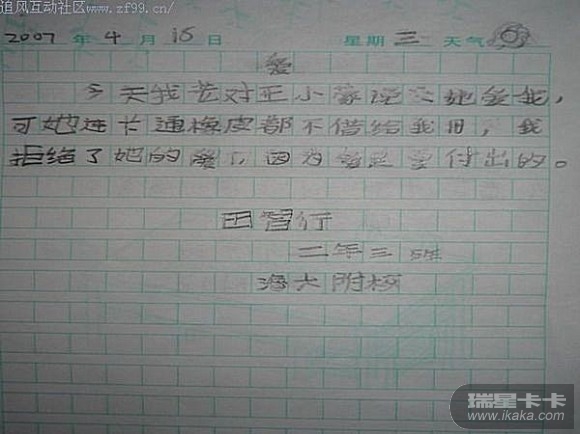 追风互动社区
www.zf99.cn/
2007 年 4 月 15 日 星期 三 天气
爱
今天我 对王小 她爱我,
可她连卡通橡皮都不借给我用,我
拒绝了她的爱,因为 付出的。
田智行
二年三班
海大附校
瑞星卡卡
www.ikaka.com